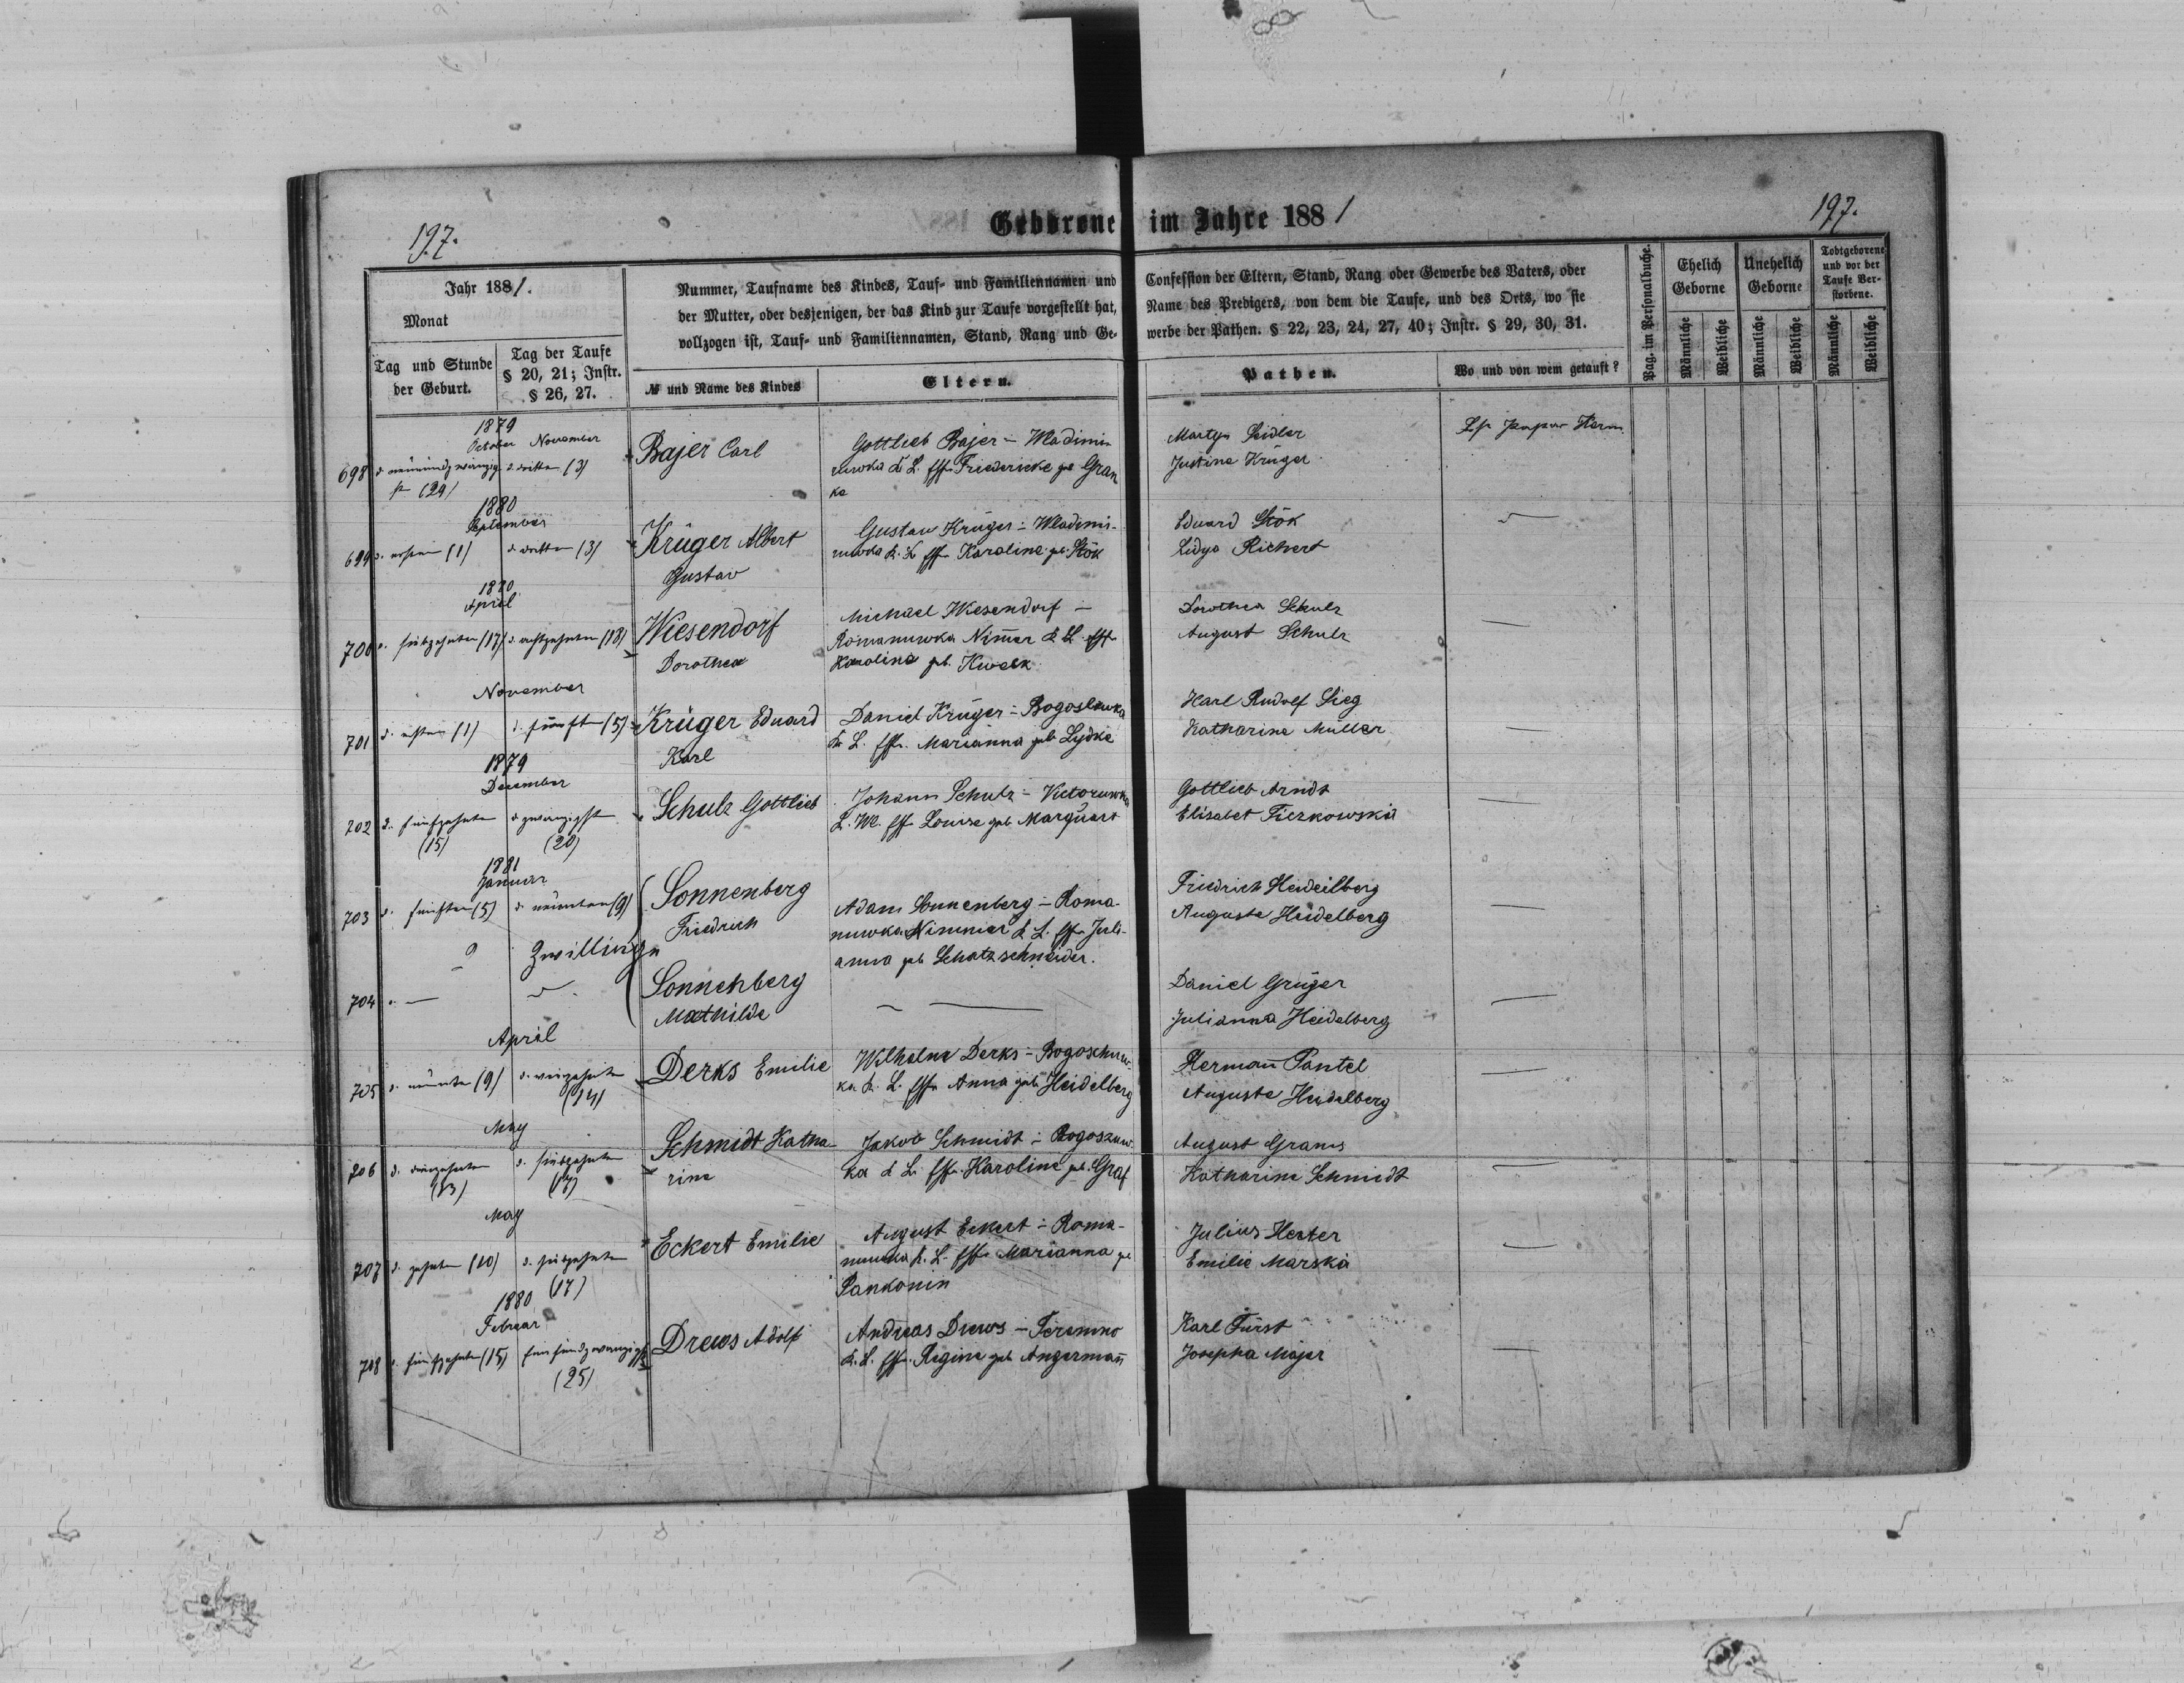 197.
Geborene im Jahre 1881
197.
Jahr 1881.
Monat
Tag und Stunde der Geburt.
Tag der Taufe § 20, 21; Instr. § 26, 27.
Nummer, Taufname des Kindes, Tauf- und Familiennamen und
der Mutter, oder desjenigen, der das Kind zur Taufe vorgestellt hat,
vollzogen ist, Tauf- und Familiennamen, Stand, Rang und Ge-
№ und Name des Kindes
Eltern.
Confession der Eltern, Stand, Rang oder Gewerbe des Vaters, oder
Name des Predigers, von dem die Taufe, und des Orts, wo sie
werbe der Pathen. § 22, 23, 24, 27, 40; Instr. § 29, 30, 31.
Pathen.
Wo und von wem getauft?
Pag. im Personalbuche.
Ehelich Geborne
Unehelich Geborne
Todtgeborene und vor der Taufe Ver- storbene.
Männliche
Weibliche
Männliche
Weibliche
Männliche
Weibliche
1879
October November
698 d. neunundzwanzig- d. dritten (3) Bajer Carl Gottlieb Bajer - Wladimi- Martyn Seidler
(29) ruwka Friedericke geb Gran Justina Krüger
ka
1880
September
699 d. ersten (1) d. dritten (3) Krüger Albert Gustaw Krüger - Wladimi- Eduard Stök
Gustav ruwka Karoline geb. Stök Lidya Richert
1880
April
700 d. siebzehnten (17) d. achtzehnten (18) Wiesendorf Michael Wiesendorf - Dorothea Schulz
Dorothea Romanuwka August Schulz
Karolina geb. Kweek
November
701 d. ersten (1) d. fünften (5) Krüger Eduard Daniel Krüger - Bogosluwka Karl Rudolf Sieg
Karl Marianna geb Lydke Katharina Müller
1879
December
702 d. fünfzehnten d. zwanzigsten Schulz Gottlieb Johann Schulz - Victoruwka Gottlieb Arndt
(15) (20) Louise geb Marquart Elisabet Fiezkowska
1881
Januar
703 d. fünften (5) d. neunten (9) Sonnenberg Adam Sonnenberg - Roma- Friedrich Heideilberg
Friedrich nuwka Juli- Auguste Heidelberg
Zwillinge anna geb Schatzschneider.
704 Sonnenberg Daniel Grüger
Mathilde Julianna Heidelberg
April
705 d. neunten (9) d. vierzehnten Derks Emilie Wilhelm Derks - Bogoschuw- Hermañ Pantel
(14) ka Anna geb Heidelberg Auguste Heidelberg
May
706 d. dreizehnten d. siebzehnten Schmidt Katha- Jakob Schmidt - Bogoszuw- August Grams
(13) (17) rina ka Karoline geb. Graf Katharina Schmidt
May
707 d. zehnten (10) d. siebzehnten Eckert Emilie August Eckert - Roma- Julius Hexter
(17) nuwka Marianna geb Emilie Marska
Pankonin
1880
Februar
708 d. fünfzehnten (15) fünfundzwanzigsten Drews Adolf Andreas Drews - Teremno Karl Fürst
(25) Regine geb Angermañ Josepha Majer